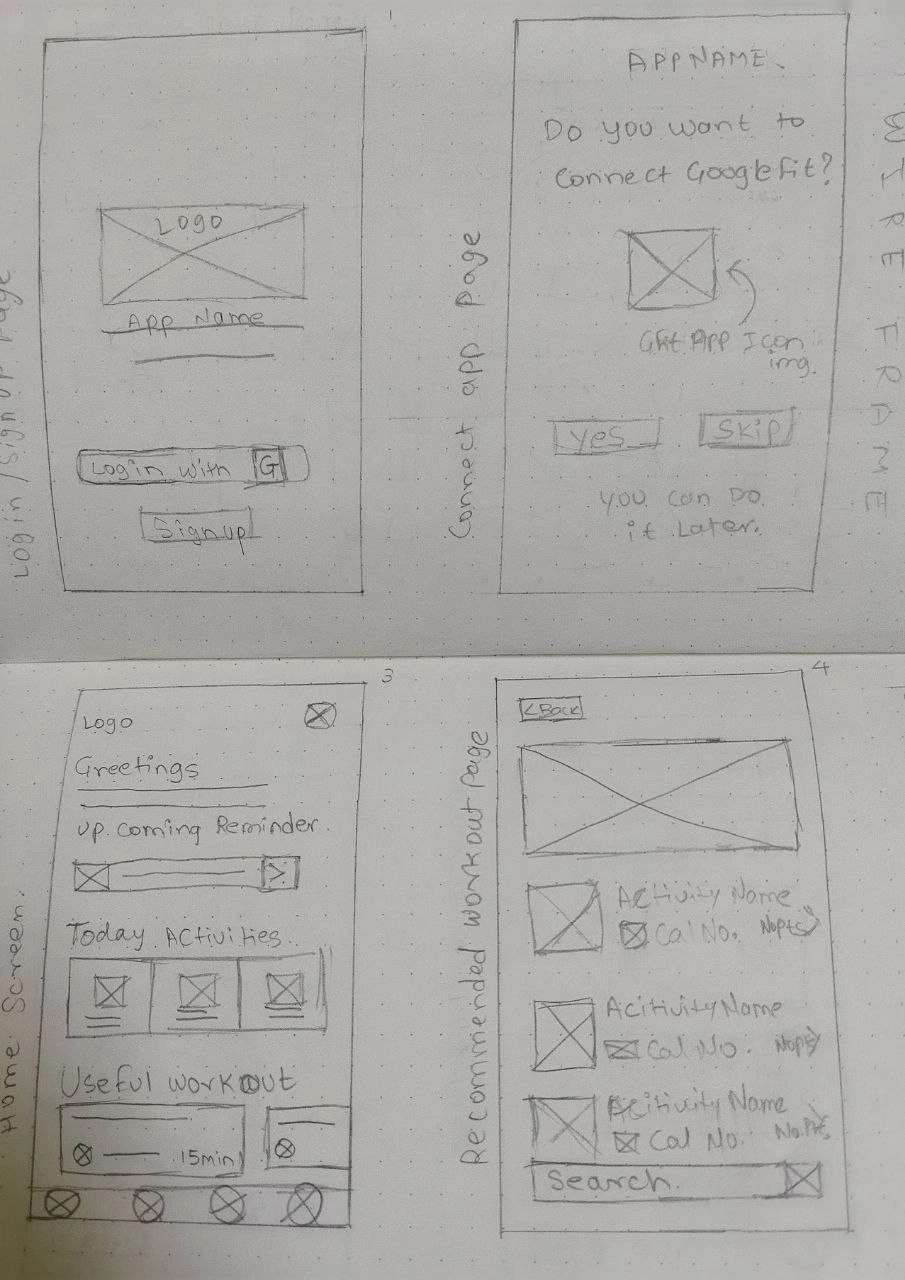 WIRE FRAME
Login / Sign up Page
Logo
App Name
Login with G
Signup
Connect app page
APP NAME.
Do you want to
Connect Google fit?
Gfit App Icon
img.
Yes
Skip
you can Do
it Later.
3
Home Screen.
Logo
Greetings
Up. coming Reminder.
>
Today Activities.
Useful workout
15min
4
Recommended workout page
<Back
Activity Name
Cal No. Nopts
Acitivity Name
Cal No. Nopts
Acitivity Name
Cal No. No.Pts
Search.